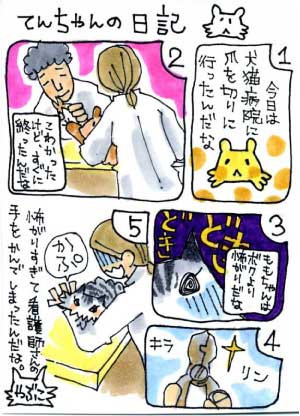 てんちゃんの日記
1
今日は
犬猫病院に
爪を切りに
行ったんだな
2
こわかった
けど、すぐに
終ったんだな
3
ももちゃんは
ボクより
怖がりだな
どき
どき
4
キラ
リン
5
かぷ。
怖がりすぎて看護師さんの
手をかんでしまったんだな。